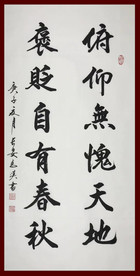 俯仰無愧天地
褒貶自有春秋
庚子夏月